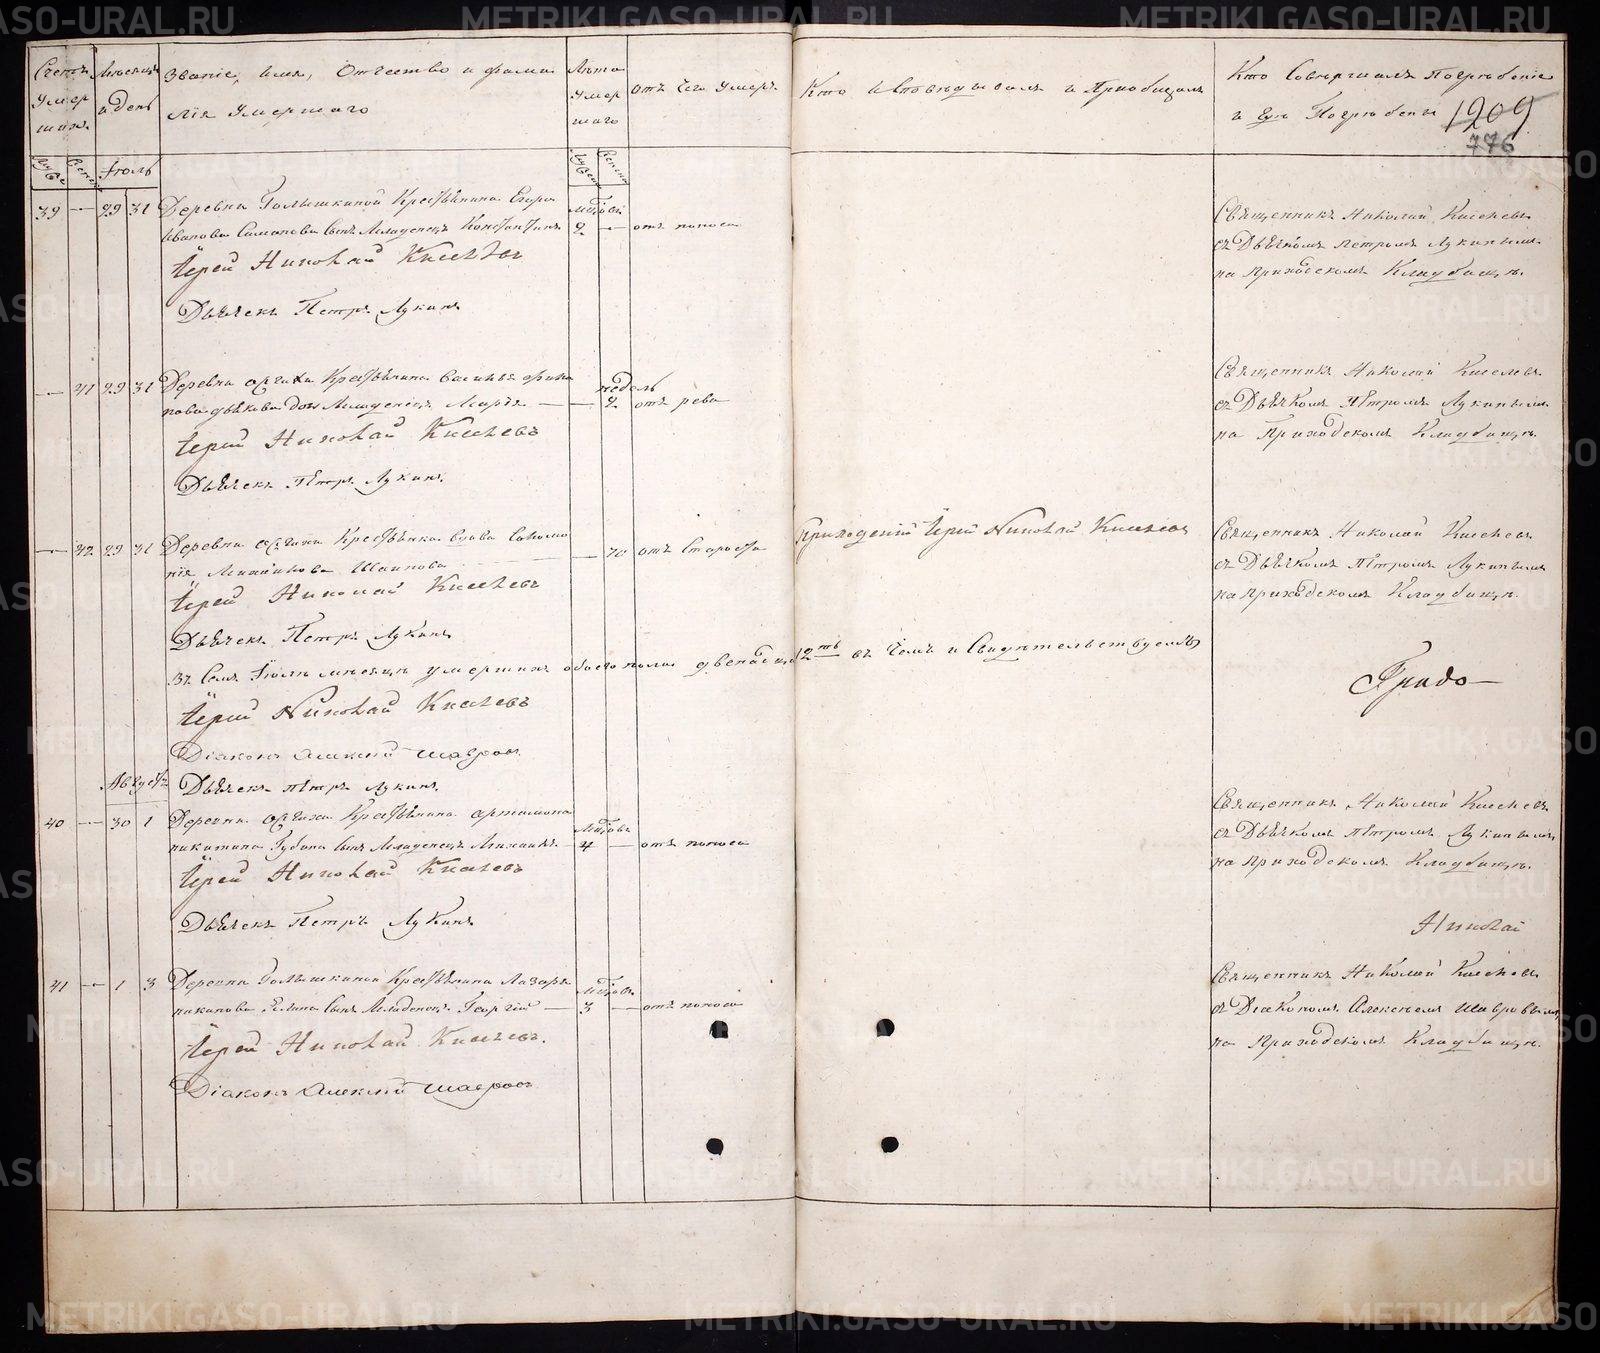 Счетъ умершихъ
Мѣсяцъ и день
Званіе, имя, отчество и фамилія умершаго
Лѣта умершаго
отъ чего умеръ
Кто исповѣдывалъ и приобщалъ
Кто совершалъ погребеніе и гдѣ погребены
1209
776
Іюль
39 — 29 31 Деревни Голышкиной Крестьянина Егора мѣсяцовъ
Иванова сынъ Младенецъ Константинъ 2 — отъ поноса
Священникъ Николай Киселевъ
съ Дьячкомъ Петромъ Лукинымъ
на приходскомъ Кладбищѣ.
Іерей Николай Киселевъ
Дьячекъ Петръ Лукинъ
— 41 29 31 Деревни Крестьянина недѣль
Младенецъ Марія — 2 отъ рева
Священникъ Николай Киселевъ
съ Дьячкомъ Петромъ Лукинымъ
на Приходскомъ Кладбищѣ.
Іерей Николай Киселевъ
Дьячекъ Петръ Лукинъ
— 42 29 31 Деревни Крестьянина вдова
— 70 отъ старости
Приходскій Іерей Николай Киселевъ
Священникъ Николай Киселевъ
съ Дьячкомъ Петромъ Лукинымъ
на приходскомъ Кладбищѣ.
Іерей Николай Киселевъ
Дьячекъ Петръ Лукинъ
Въ семъ Іюлѣ мѣсяцѣ умершихъ обоего пола двенадцать 12ть въ чемъ и свидѣтельствуемъ
Іерей Николай Киселевъ
Діаконъ Алексій Шавровъ
Дьячекъ Петръ Лукинъ
Августъ
40 — 30 1 Деревни Крестьянина Артамона мѣсяцовъ
никитина Губина сынъ Младенецъ Михаилъ — 4 — отъ поноса
Священникъ Николай Киселевъ
съ Дьячкомъ Петромъ Лукинымъ
на приходскомъ Кладбищѣ.
Іерей Николай Киселевъ
Дьячекъ Петръ Лукинъ
Николай
41 — 1 3 Деревни Голышкиной Крестьянина Лазаря мѣсяцовъ
сынъ Младенецъ Георгій — 3 — отъ поноса
Священникъ Николай Киселевъ
съ Діакономъ Алексѣемъ Шавровымъ
на Приходскомъ Кладбищѣ.
Іерей Николай Киселевъ.
Діаконъ Алексій Шавровъ
METRIKI.GASO-URAL.RU